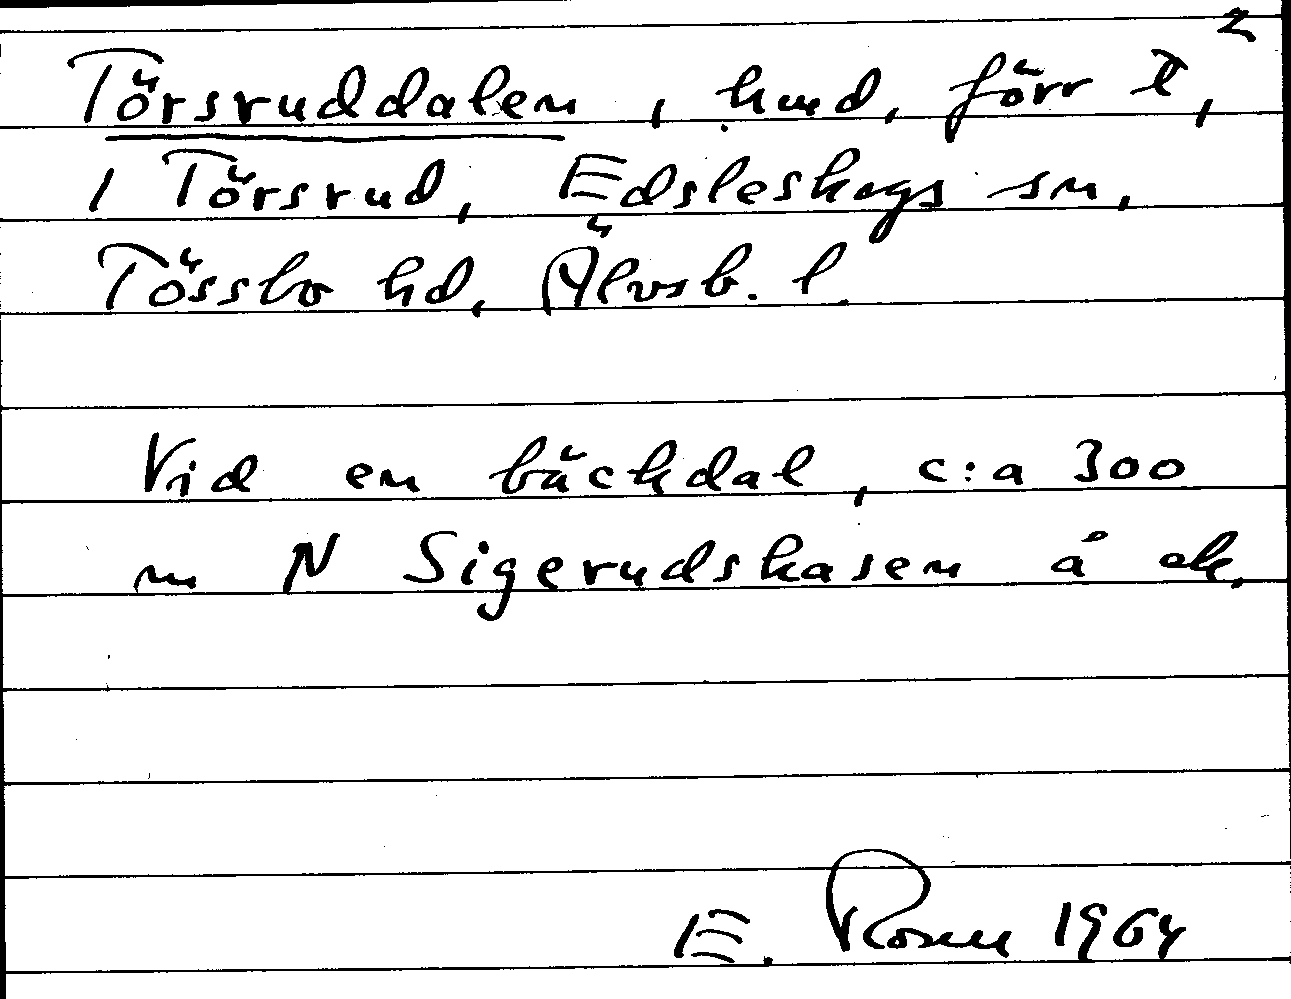 2
Törsruddalen, hmd, förr t,
1 Törsrud, Edsleskogs sn,
Tössbo hd, Älvsb. l.
Vid en bäckdal, c:a 300
m N Sigerudskasen å ek.
E. Rosen 1964